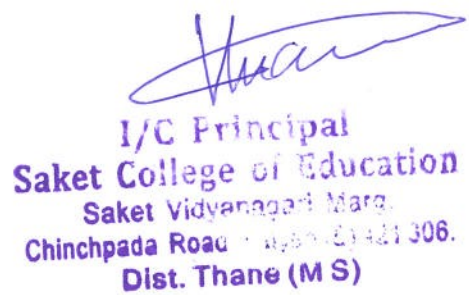 I/C Principal
Saket College of Education
Saket Vidyanagari Marg,
Chinchpada Road 421 306.
Dist. Thane (M S)